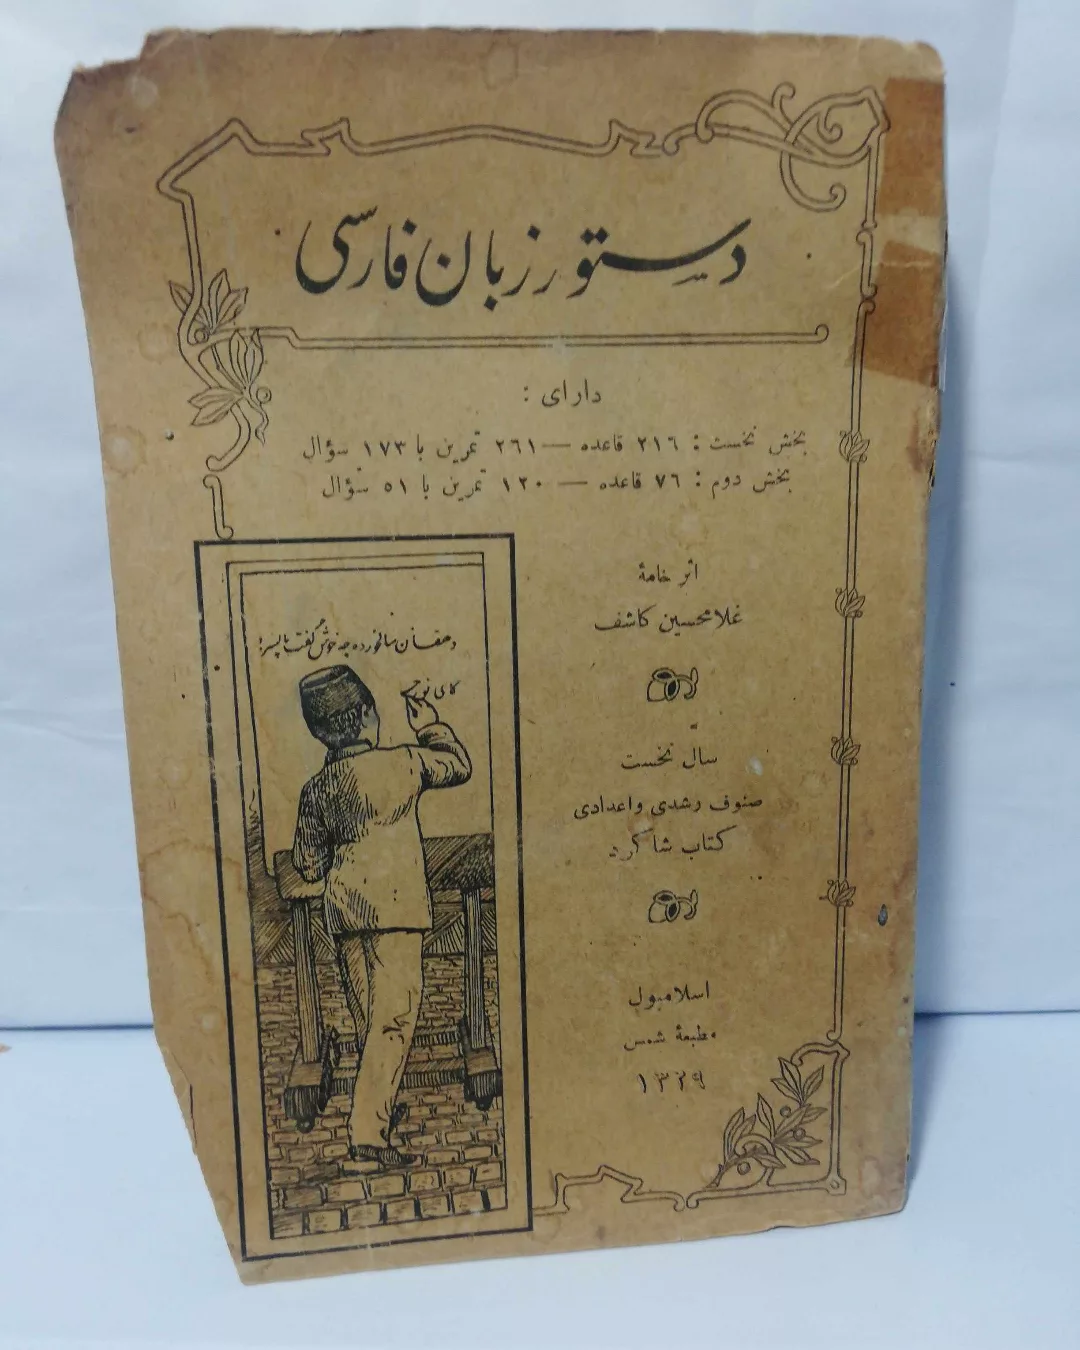 دستور زبان فارسی
دارای :
بخش نخست : ٢١٦ قاعده — ٢٦١ تمرین با ١٧٣ سؤال
بخش دوم : ٧٦ قاعده — ١٢٠ تمرین با ٥١ سؤال
اثر خامهٔ
غلامحسین کاشف
سال نخست
صنوف رشدی و اعدادی
کتاب شاگرد
اسلامبول
مطبعهٔ شمس
١٣٢٩
دهقان سالخورده چه خوش گفت با پسر:
کای نور چ